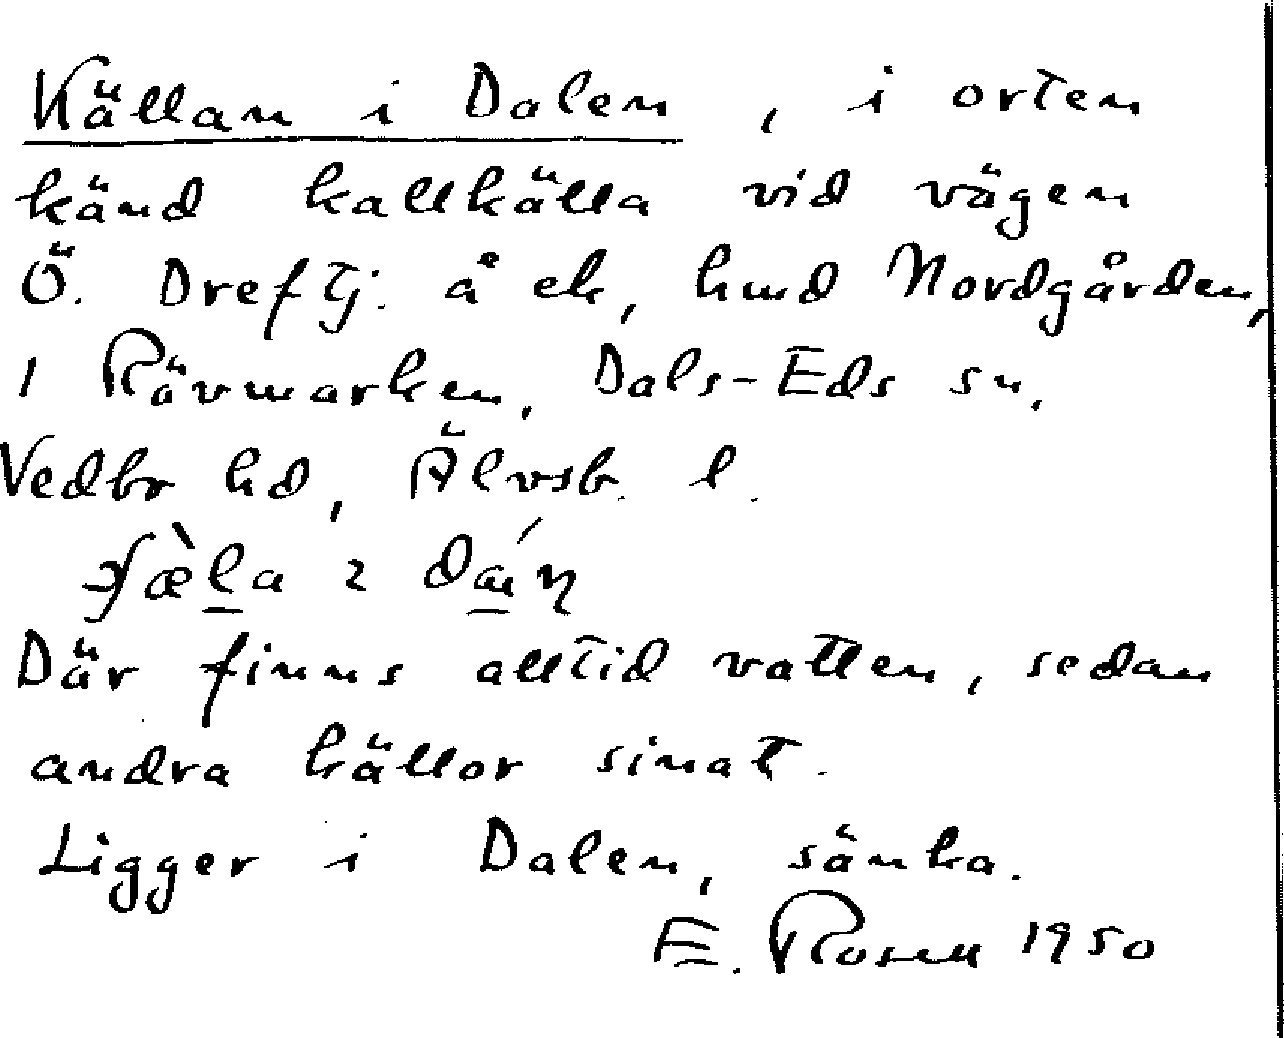 Källan i Dalen, i orten
känd kallkälla vid vägen
Ö. Dreftj. å ek, hmd Nordgården,
i Rävmarken, Dals-Eds sn,
Vedbo hd, Älvsb. l.
i
Där finns alltid vatten, sedan
andra källor sinat.
Ligger i Dalen, sänka.
E. Rosell 1950